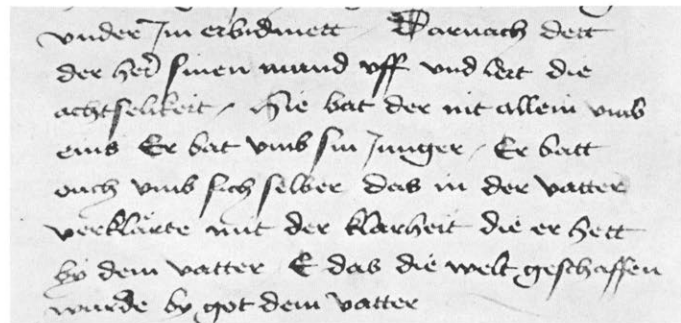 vnder Jm erbidmett Darnach dett
der her̄ sinen mund vff vnd lert die
achtselikeit / Hie bat der nit allein vmb
eins Er bat vmb sin Junger / Er batt
ouch vmb sich selber das in der vatter
verklärte mit der klarheit die er hett
by dem vatter E das die welt geschaffen
wurde by got dem vatter